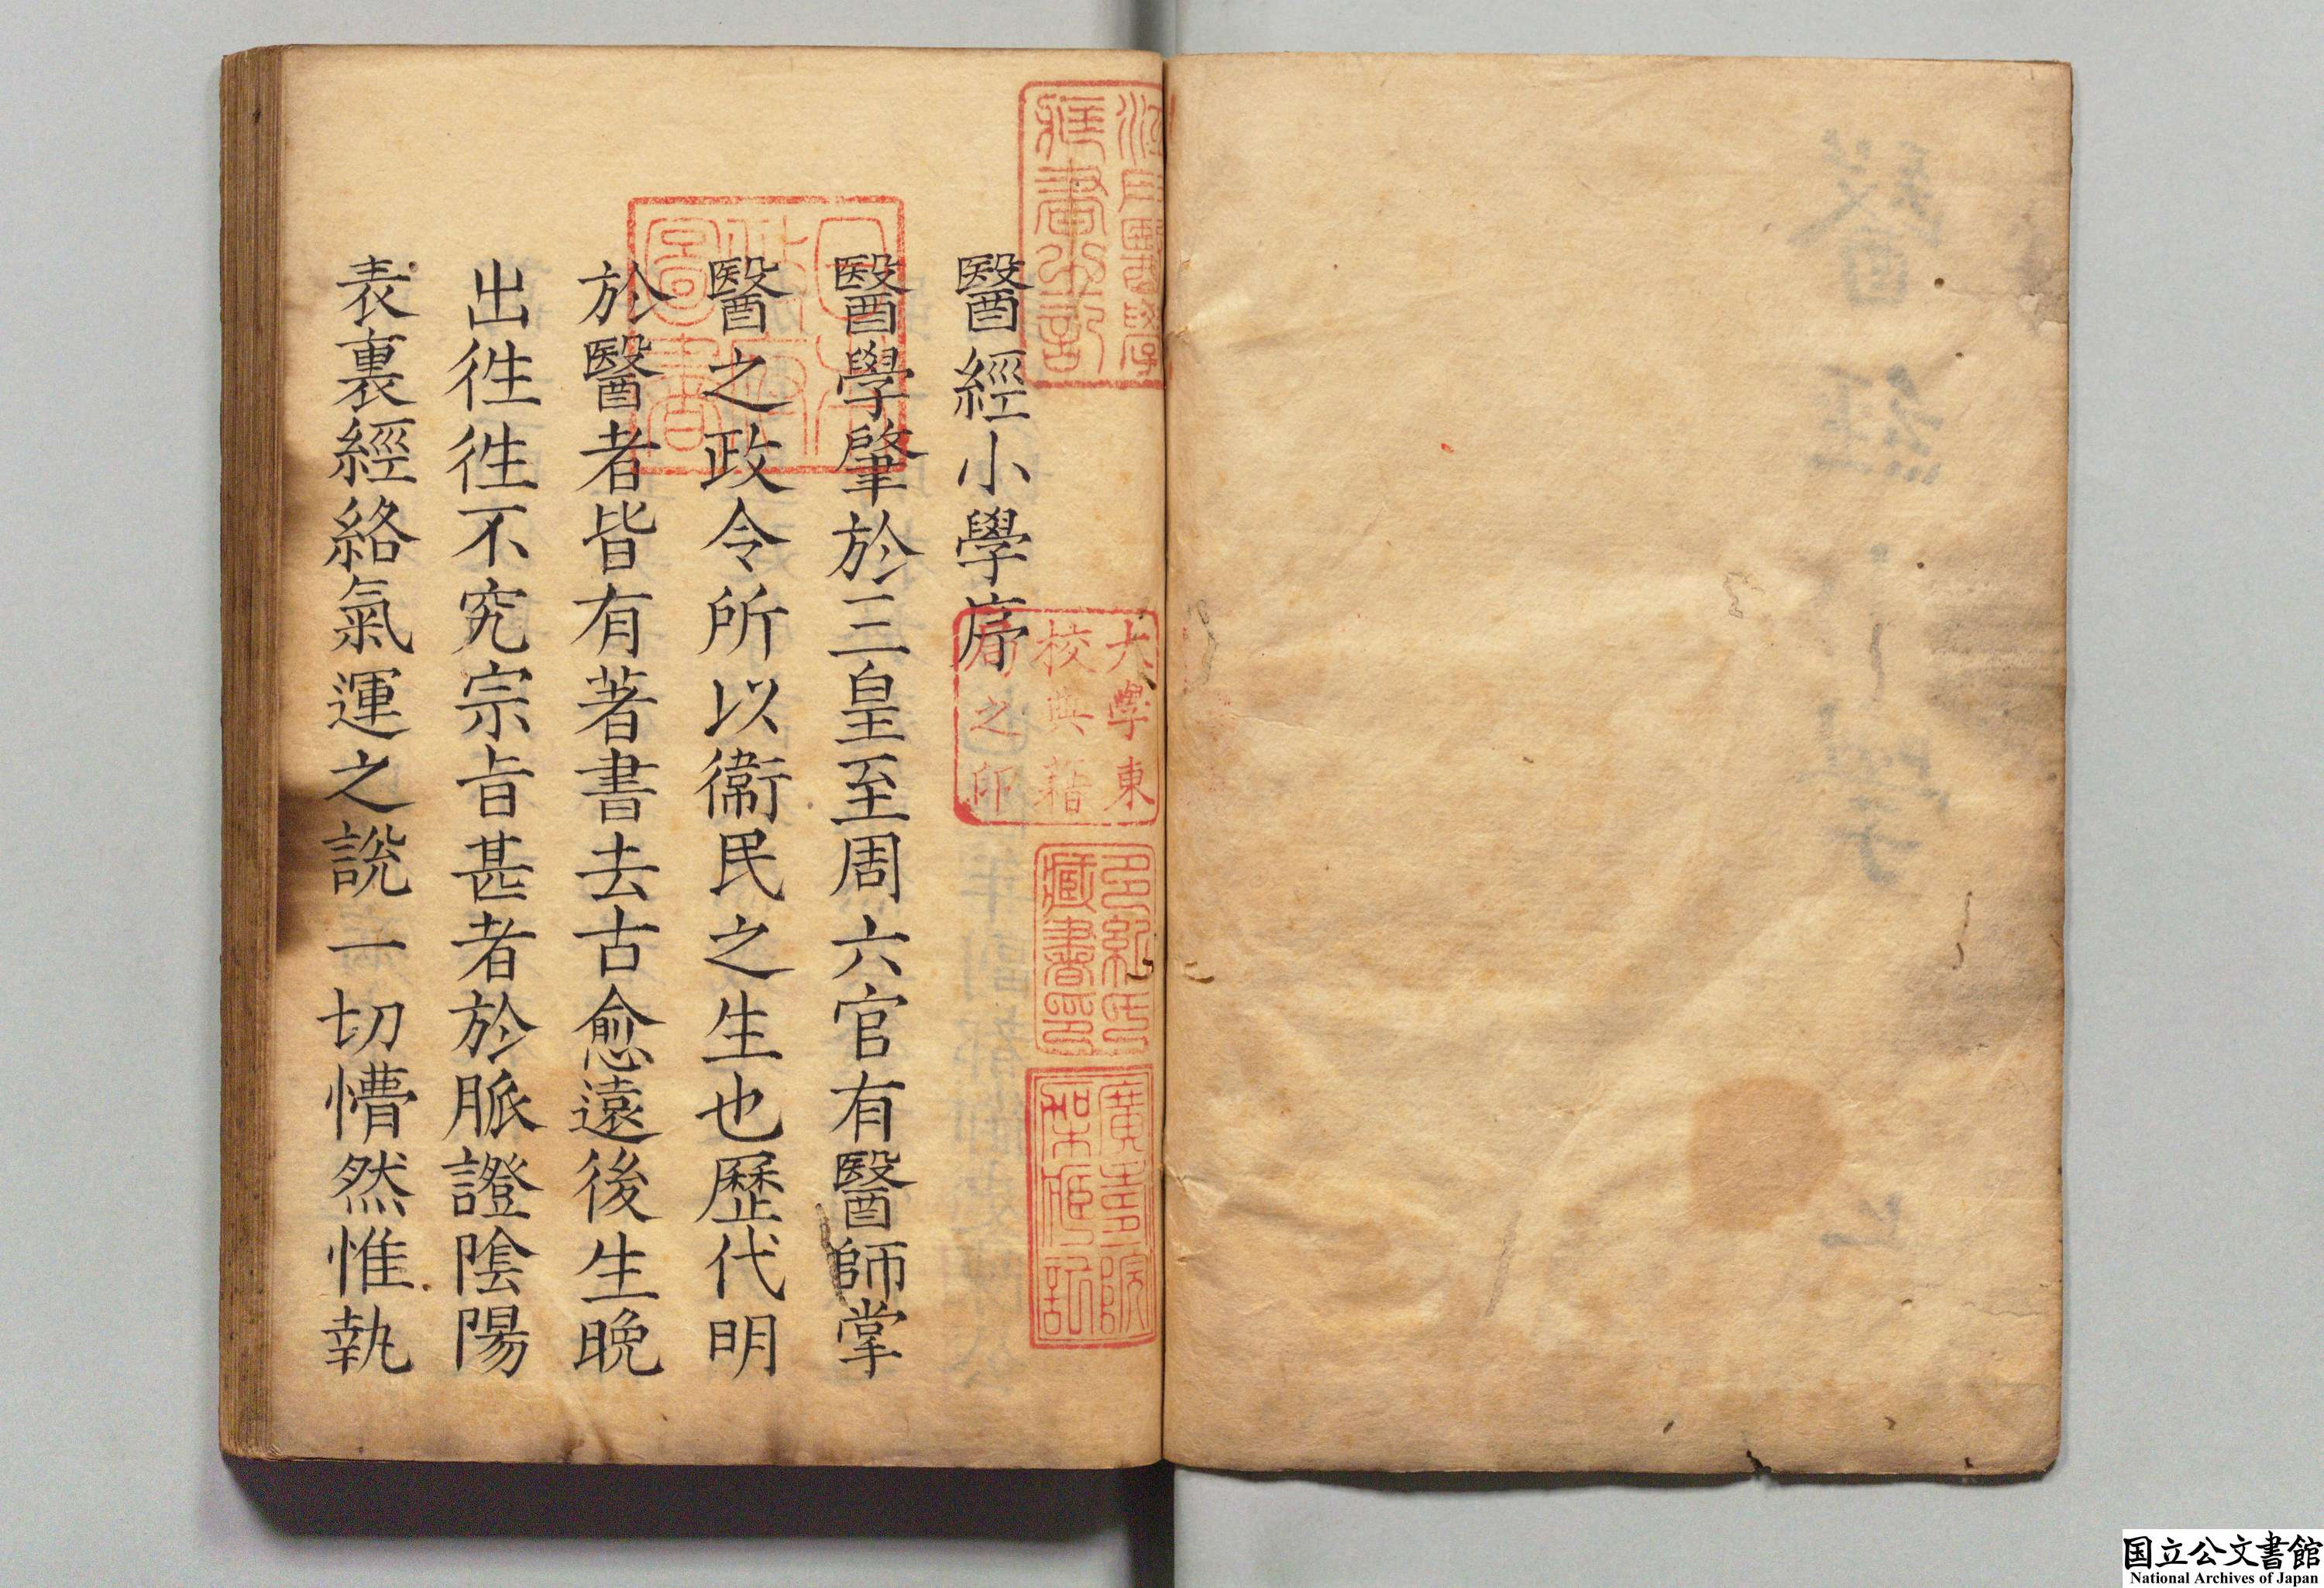 醫經小學
上
醫經小學序
醫學肇於三皇至周六官有醫師掌
醫之政令所以衞民之生也歷代明
於醫者皆有著書去古愈遠後生晚
出徃徃不究宗㫖甚者於脈證陰陽
表裏經絡氣運之說一切懵然惟執
江戶醫學
藏書之記
日本
政府
圖書
大學東
校典籍
局之印
多紀氏
藏書印
廣壽院
架藏記
国立公文書館
National Archives of Japan